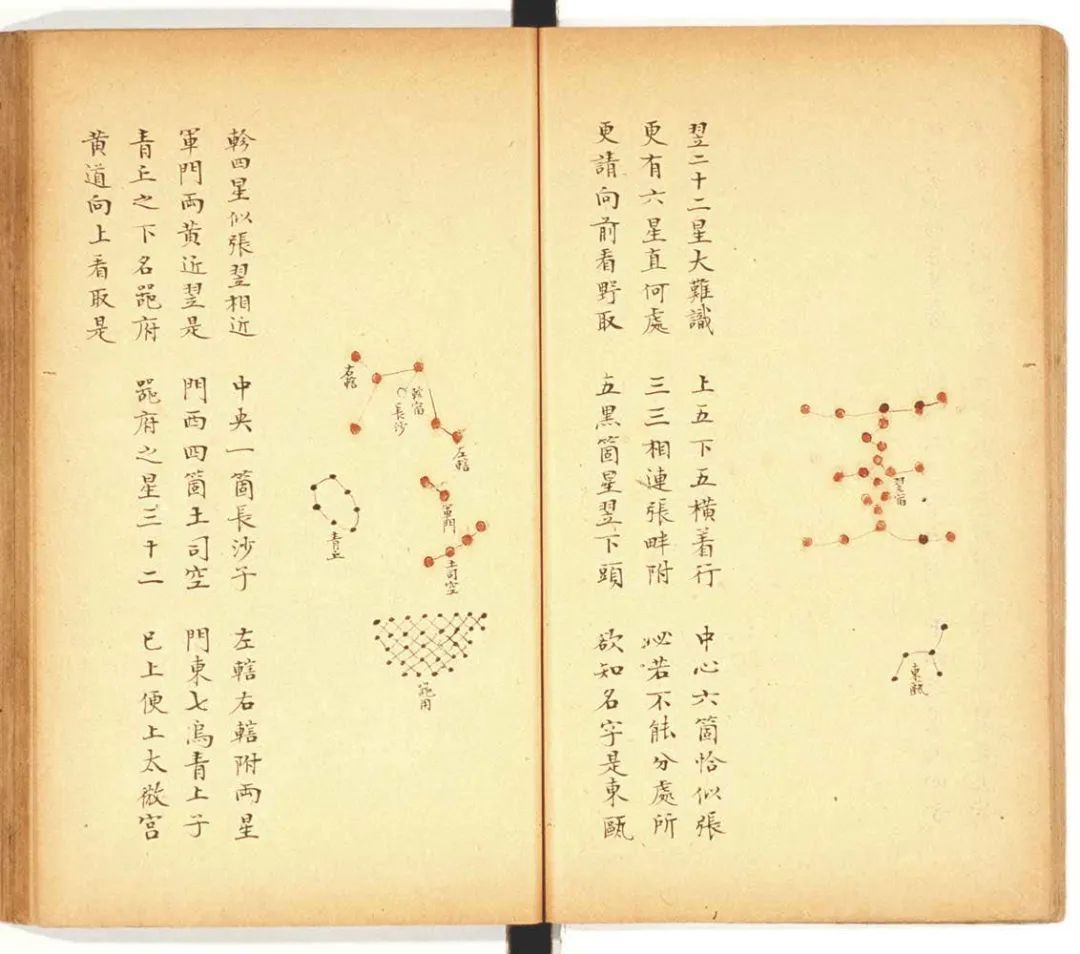 翌二十二星大難識 上五下五橫着行 中心六箇恰似張
更有六星直何處 三三相連張畔附 必若不能分處所
更請向前看野取 五黑箇星翌下頭 欲知名字是東甌
翌宿
東甌
軫四星似張翌相近 中央一箇長沙子 左轄右轄附兩星
軍門兩黃近翌是 門西四箇土司空 門東七烏青丘子
青丘之下名噐府 噐府之星三十二 已上便上太微宮
黃道向上看取是
左轄
軫宿
長沙
右轄
軍門
土司空
青丘
噐府